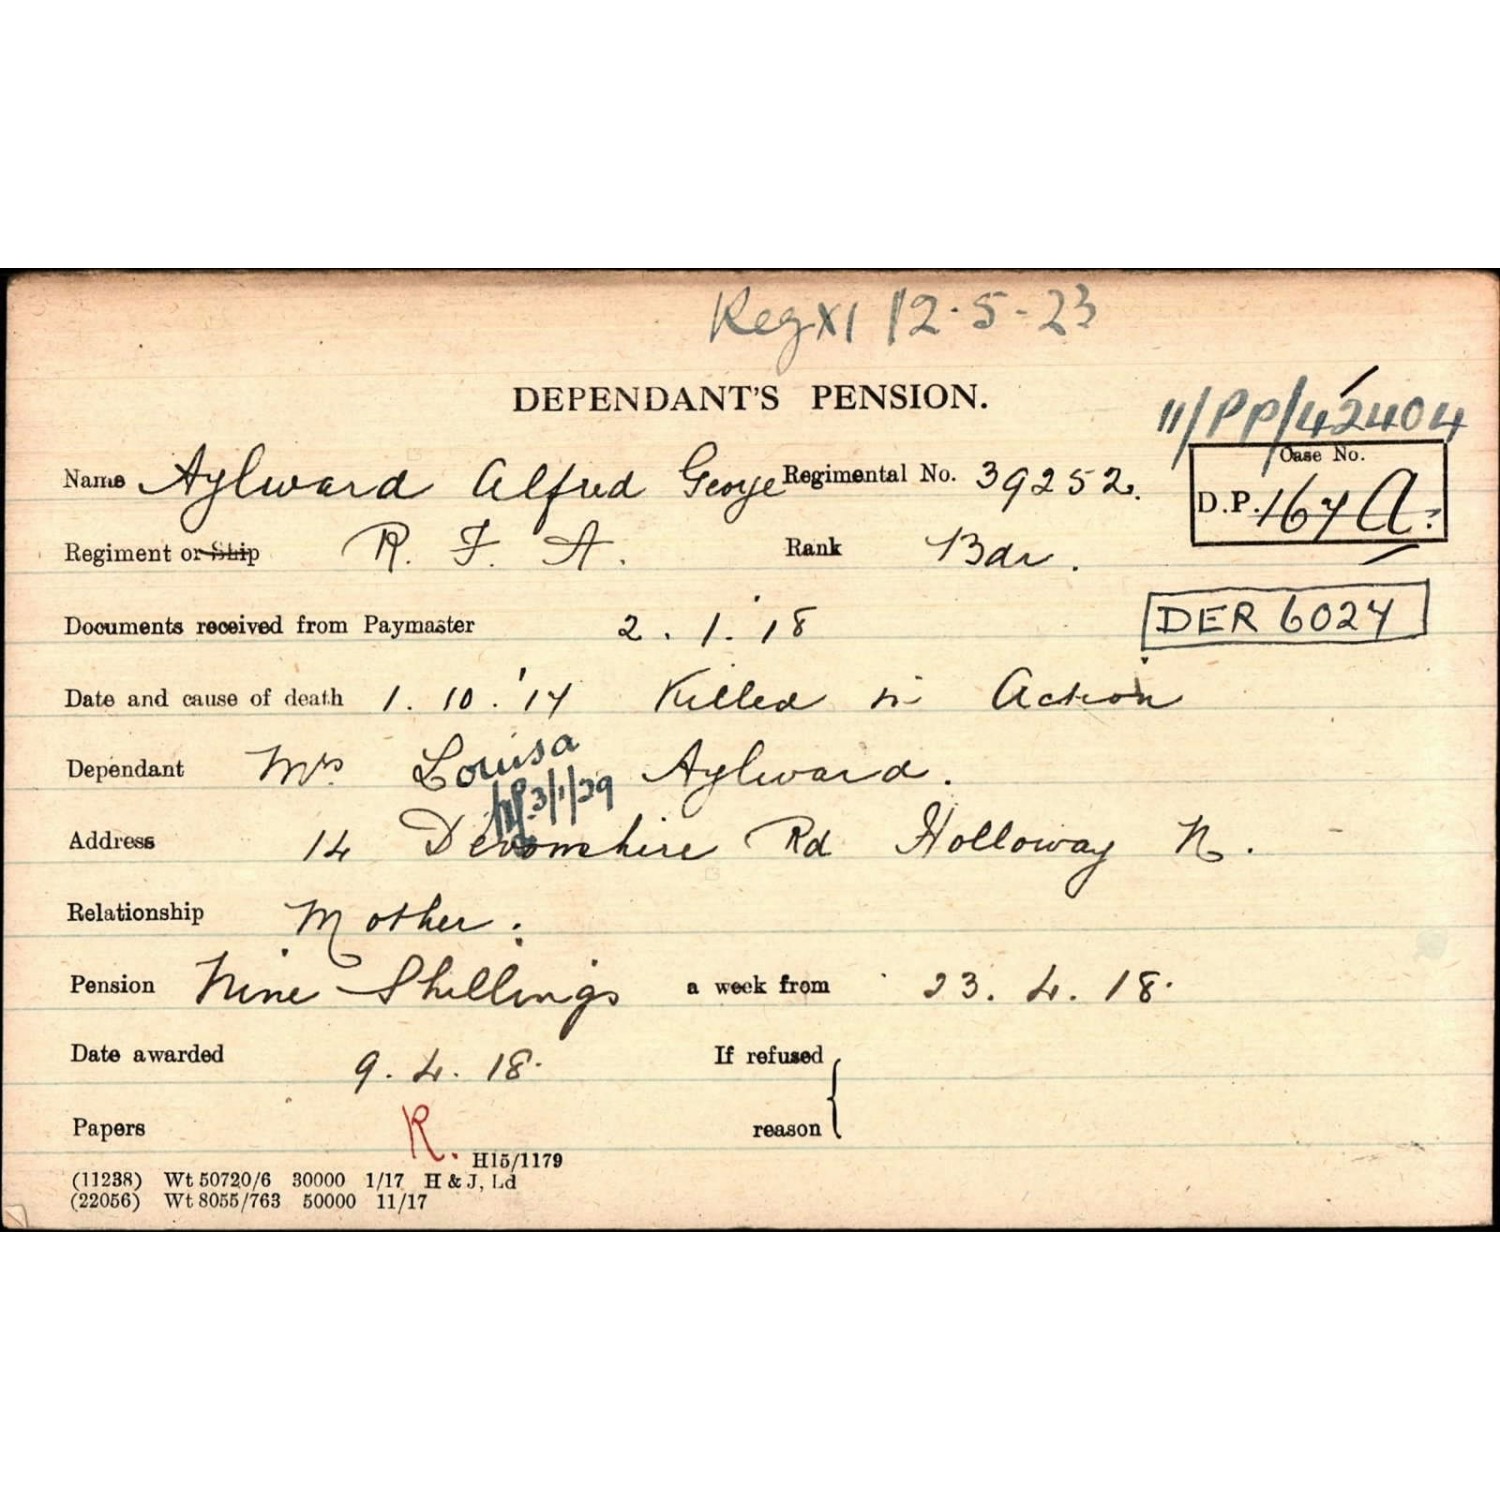 Reg XI 12·5-23
DEPENDANT'S PENSION.
11/PP/42404
Name Aylward Alfred George Regimental No. 39252.
Case No.
D.P. 167 A.
Regiment or Ship R. F. A. Rank Bdr.
Documents received from Paymaster 2. 1. '18
DER 6024
Date and cause of death 1. 10. '17 Killed in Action
Dependant Mrs Louisa Aylward.
3/1/29
Address 14 Devonshire Rd Holloway N.
Relationship Mother.
Pension Nine Shillings a week from 23. 4. 18.
Date awarded 9. 4. 18. If refused
Papers R. reason
H15/1179
(11238) Wt 50720/6 30000 1/17 H & J, Ld
(22056) Wt 8055/763 50000 11/17